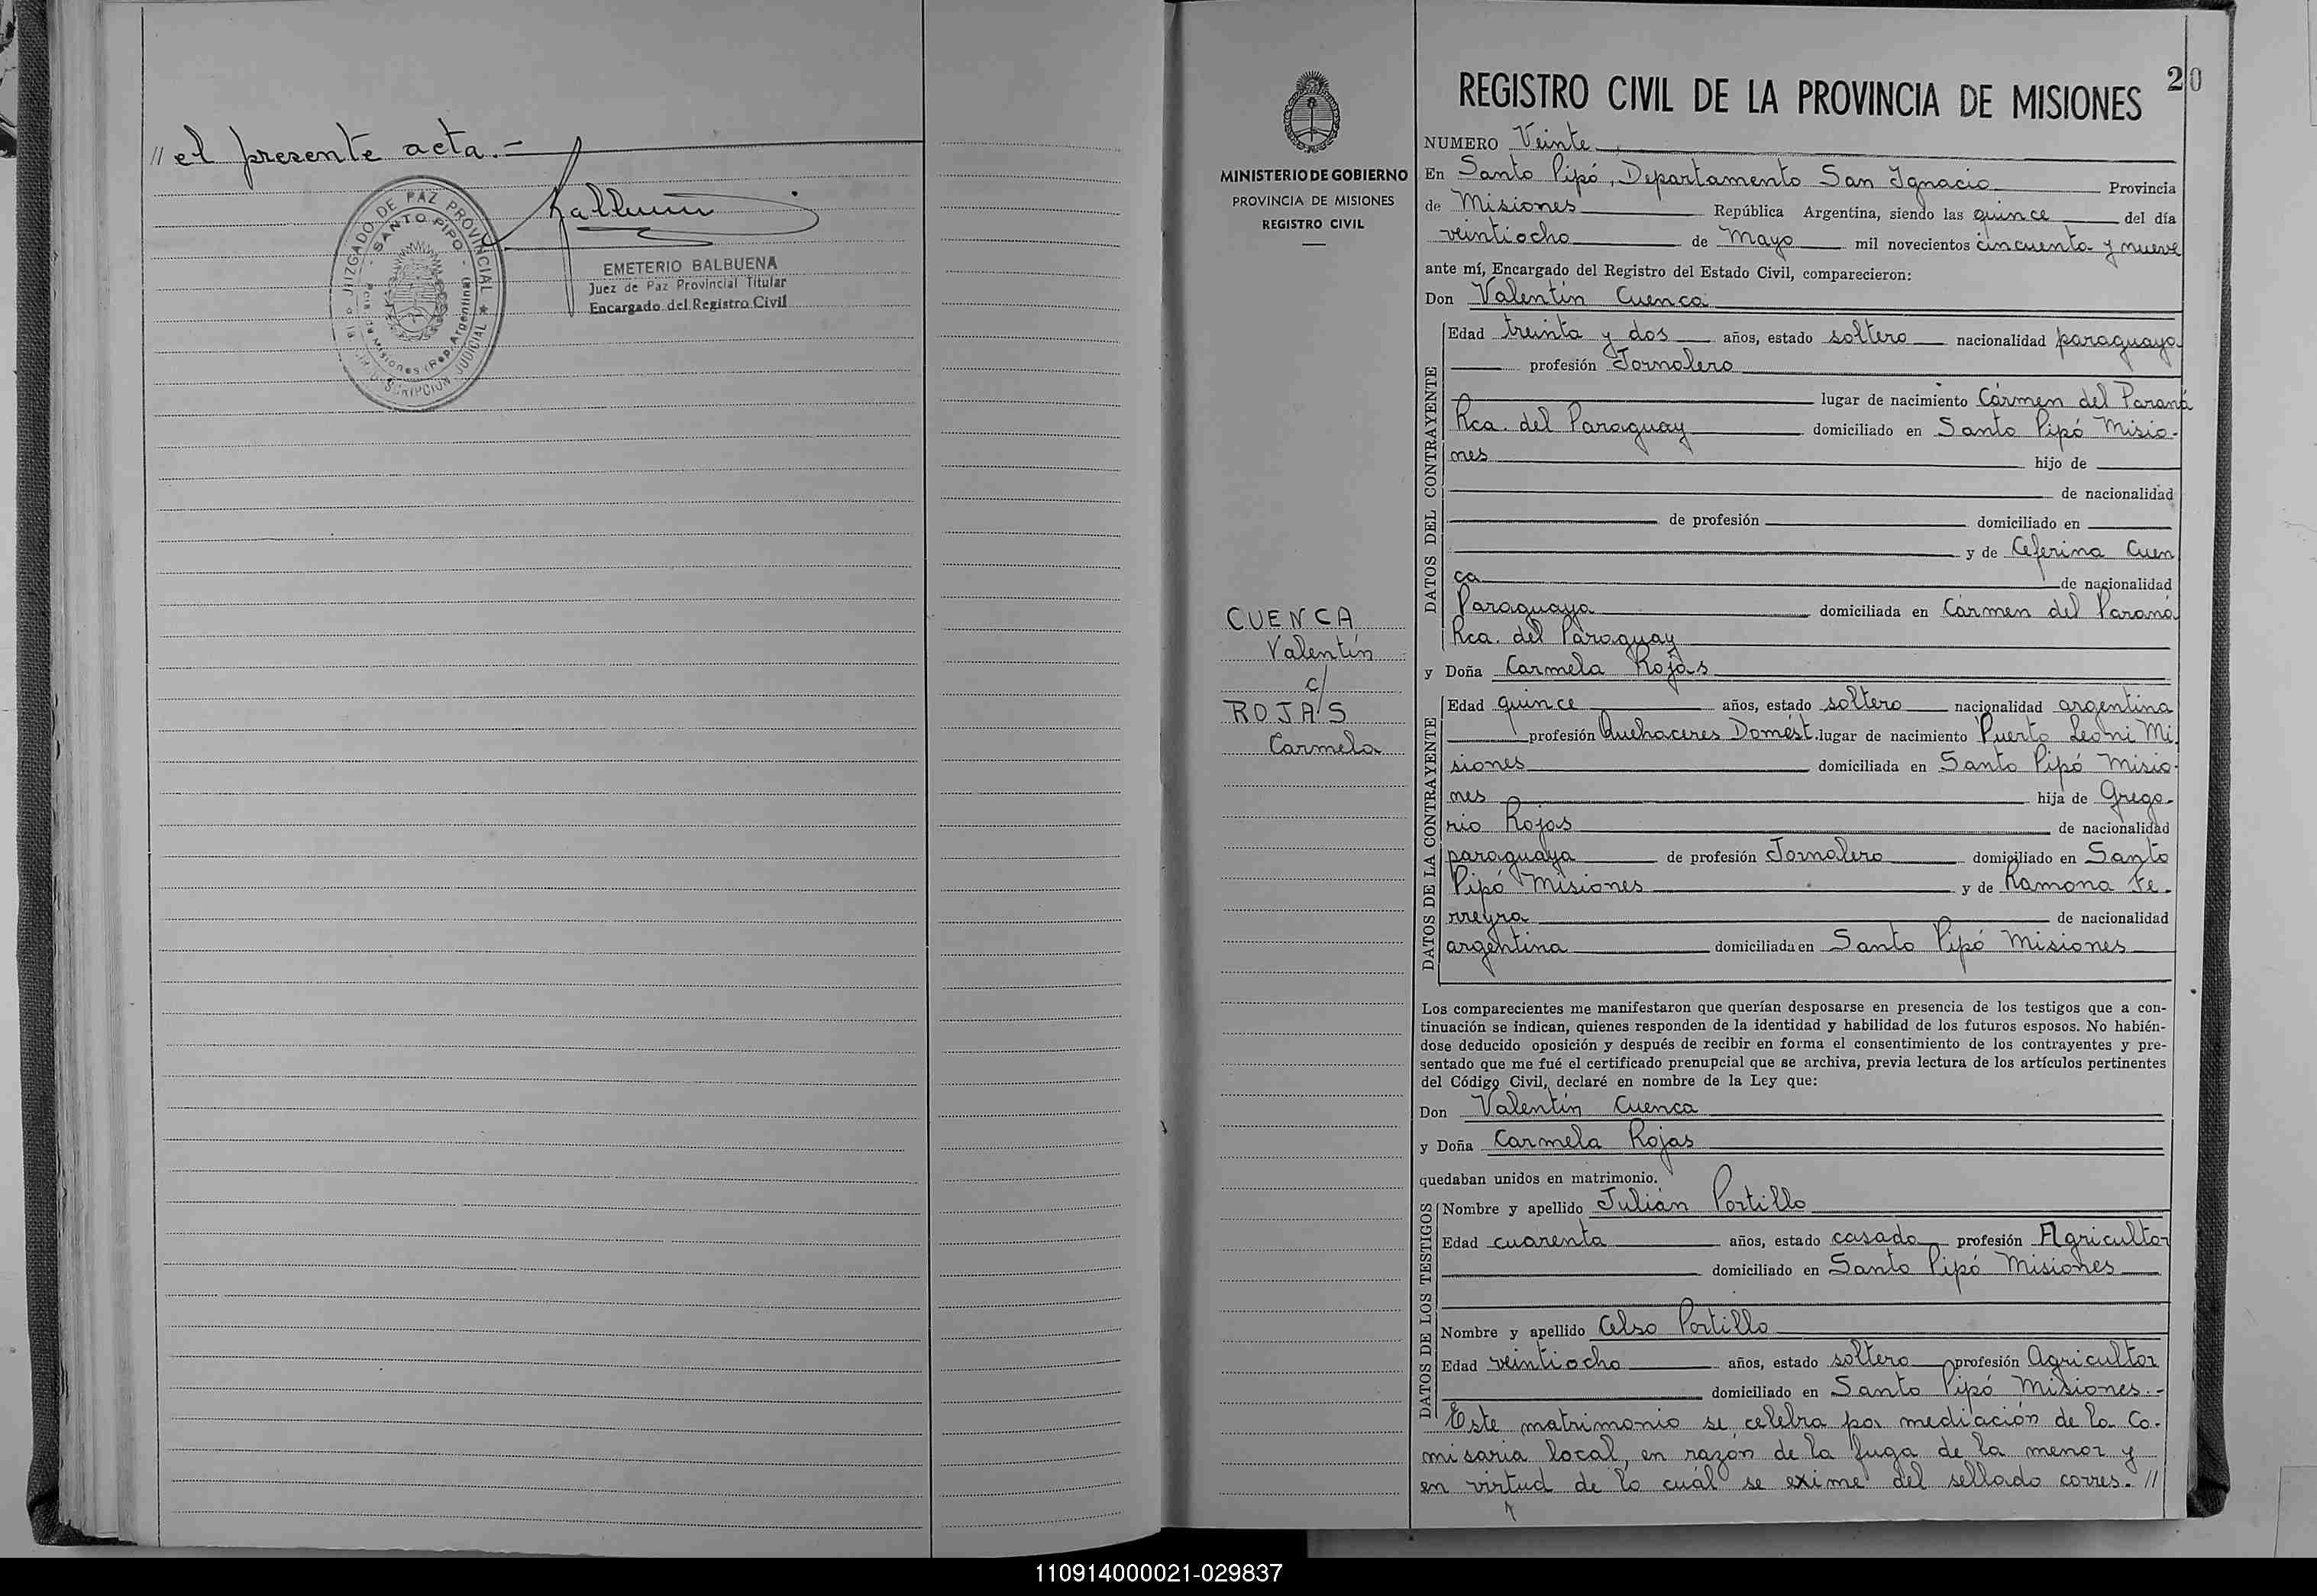 // el presente acta.-
JUZGADO DE PAZ PROVINCIAL
SANTO PIPO
Misiones (Rep. Argentina)
JUDICIAL
EMETERIO BALBUENA
Juez de Paz Provincial Titular
Encargado del Registro Civil
MINISTERIO DE GOBIERNO
PROVINCIA DE MISIONES
REGISTRO CIVIL
CUENCA
Valentín
c/
ROJAS
Carmela
REGISTRO CIVIL DE LA PROVINCIA DE MISIONES 20
NUMERO Veinte
En Santo Pipó, Departamento San Ignacio Provincia
de Misiones República Argentina, siendo las quince del día
veintiocho de Mayo mil novecientos cincuenta y nueve
ante mí, Encargado del Registro del Estado Civil, comparecieron:
Don Valentín Cuenca
DATOS DEL CONTRAYENTE
Edad treinta y dos años, estado soltero nacionalidad paraguaya
profesión Jornalero
lugar de nacimiento Cármen del Paraná
Rca. del Paraguay domiciliado en Santo Pipó Misio-
nes hijo de
de nacionalidad
de profesión domiciliado en
y de Ceferina Cuen
ca de nacionalidad
Paraguaya domiciliada en Cármen del Paraná
Rca. del Paraguay
y Doña Carmela Rojas
DATOS DE LA CONTRAYENTE
Edad quince años, estado soltero nacionalidad argentina
profesión Quehaceres Domést. lugar de nacimiento Puerto Leoni Mi
siones domiciliada en Santo Pipó Misio-
nes hija de Grego-
rio Rojas de nacionalidad
paraguaya de profesión Jornalero domiciliado en Santo
Pipó Misiones y de Ramona Fe-
rreyra de nacionalidad
argentina domiciliada en Santo Pipó Misiones
Los comparecientes me manifestaron que querían desposarse en presencia de los testigos que a con-
tinuación se indican, quienes responden de la identidad y habilidad de los futuros esposos. No habién-
dose deducido oposición y después de recibir en forma el consentimiento de los contrayentes y pre-
sentado que me fué el certificado prenupcial que se archiva, previa lectura de los artículos pertinentes
del Código Civil, declaré en nombre de la Ley que:
Don Valentín Cuenca
y Doña Carmela Rojas
quedaban unidos en matrimonio.
DATOS DE LOS TESTIGOS
Nombre y apellido Julián Portillo
Edad cuarenta años, estado casado profesión Agricultor
domiciliado en Santo Pipó Misiones
Nombre y apellido Celso Portillo
Edad veintiocho años, estado soltero profesión Agricultor
domiciliado en Santo Pipó Misiones.-
Este matrimonio se celebra por mediación de la Co-
misaria local, en razón de la fuga de la menor y
en virtud de lo cuál se exime del sellado corres. //
110914000021-029837